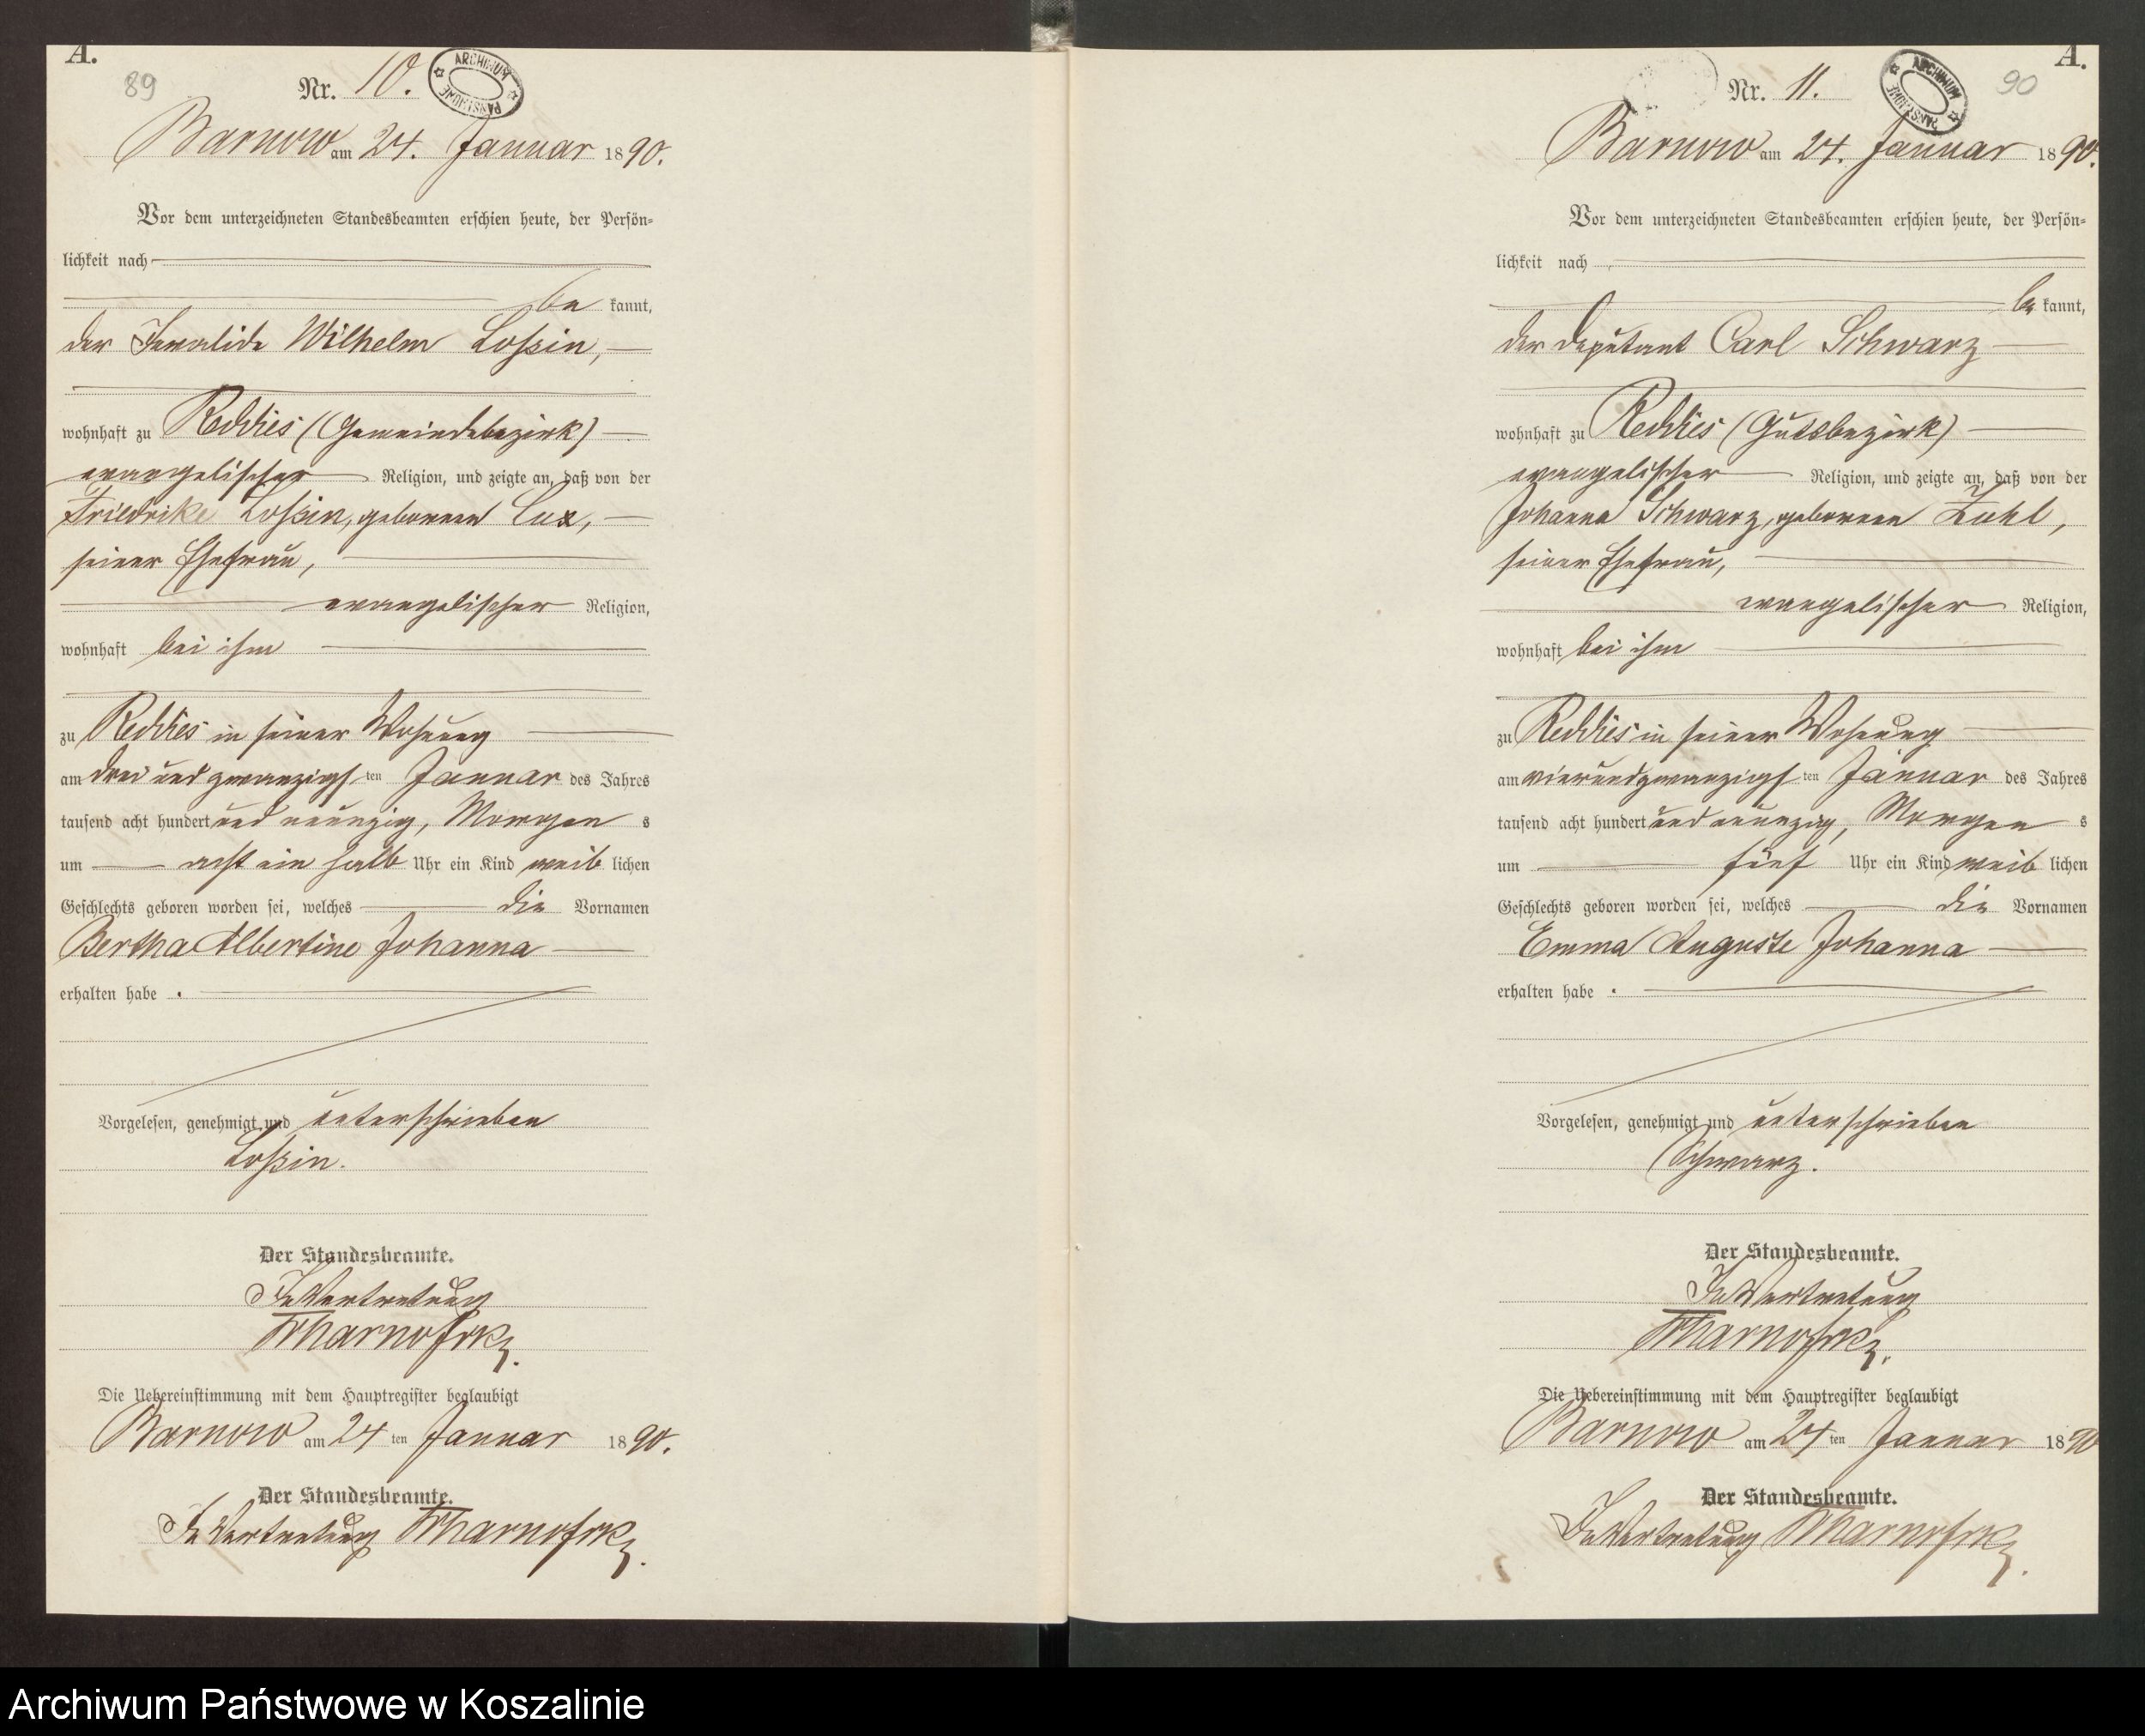 A.
89
Nr. 10.
ARCHIWUM PAŃSTWOWE
Barnow am 24. Januar 1890.
Vor dem unterzeichneten Standesbeamten erschien heute, der Persön-
lichkeit nach
be kannt,
der Invalide Wilhelm Loßin,
wohnhaft zu Reddies (Gemeindebezirk)
evangelischer Religion, und zeigte an, daß von der
Friedrike Loßin, geborenen Lux,
seiner Ehefrau,
evangelischer Religion,
wohnhaft bei ihm
zu Reddies in seiner Wohnung
am drei und zwanzigsten Januar des Jahres
tausend acht hundert und neunzig, Morgens
um acht ein halb Uhr ein Kind weiblichen
Geschlechts geboren worden sei, welches die Vornamen
Bertha Albertine Johanna
erhalten habe.
Vorgelesen, genehmigt und unterschrieben
Loßin.
Der Standesbeamte.
In Vertretung
Die Uebereinstimmung mit dem Hauptregister beglaubigt
Barnow am 24ten Januar 1890.
Der Standesbeamte.
In Vertretung
A.
90
Nr. 11.
ARCHIWUM PAŃSTWOWE
Barnow am 24. Januar 1890.
Vor dem unterzeichneten Standesbeamten erschien heute, der Persön-
lichkeit nach
be kannt,
der Deputant Carl Schwarz
wohnhaft zu Reddies (Gutsbezirk)
evangelischer Religion, und zeigte an, daß von der
Johanna Schwarz, geborenen
seiner Ehefrau,
evangelischer Religion,
wohnhaft bei ihm
zu Reddies in seiner Wohnung
am vierundzwanzigsten Januar des Jahres
tausend acht hundert und neunzig, Morgens
um fünf Uhr ein Kind weiblichen
Geschlechts geboren worden sei, welches die Vornamen
Emma Auguste Johanna
erhalten habe.
Vorgelesen, genehmigt und unterschrieben
Schwarz.
Der Standesbeamte.
In Vertretung
Die Uebereinstimmung mit dem Hauptregister beglaubigt
Barnow am 24ten Januar 1890
Der Standesbeamte.
In Vertretung
Archiwum Państwowe w Koszalinie